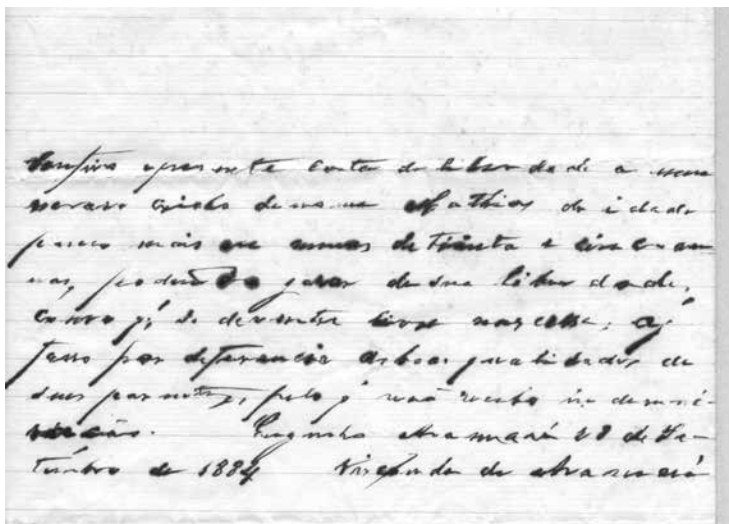 Confiro apresente carta de liberdade a meu
escravo criolo de nome Mathias de idade
pouco mais ou menos de trinta e cinco an
nos, podendo gosar de sua liberdade,
como q' de ventre livre nascesse;
faço por deferencia as boas qualidades de
seus parentes, pelo q' não recebo indemni-
sação. Engenho Aramaré 28 de Se-
tembro de 1884 Visconde de Aramaré